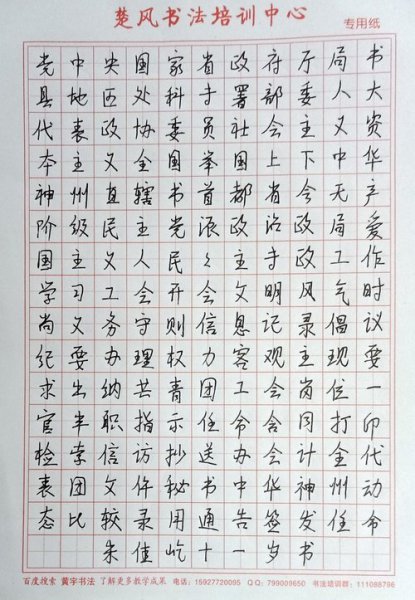 楚风书法培训中心
专用纸
党中央国家省政府厅局书
县地区处科干署部委人大
代表政协委员社会主义资
本主义全国举国上下中华
神州直辖书首都省会无产
阶级民主党派政治政局爱
国主义人民民主专政工作
学习工会开会文明风气时
尚义务守则信息记录倡议
纪要办理权力客观主观要
求出纳共青团工会岗位一
官半职指示任命合同打印
检索信访抄送办会计全代
表团文件秘书中华神州动
态比较录用通告签发任命
朱佳屹十一岁书
百度搜索 黄宇书法 了解更多教学成果 电话：15927720095 QQ：799009650 书法培训群：111088796